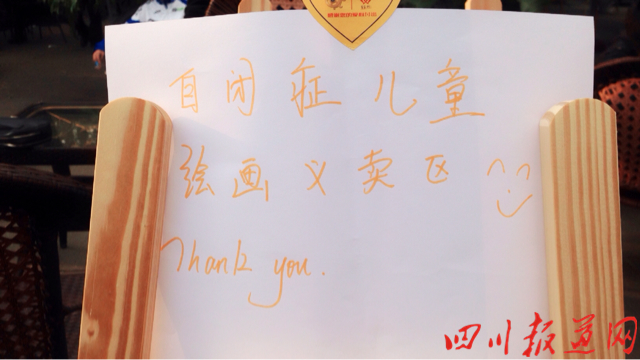 自闭症儿童
绘画义卖区
Thank you.
四川报道网